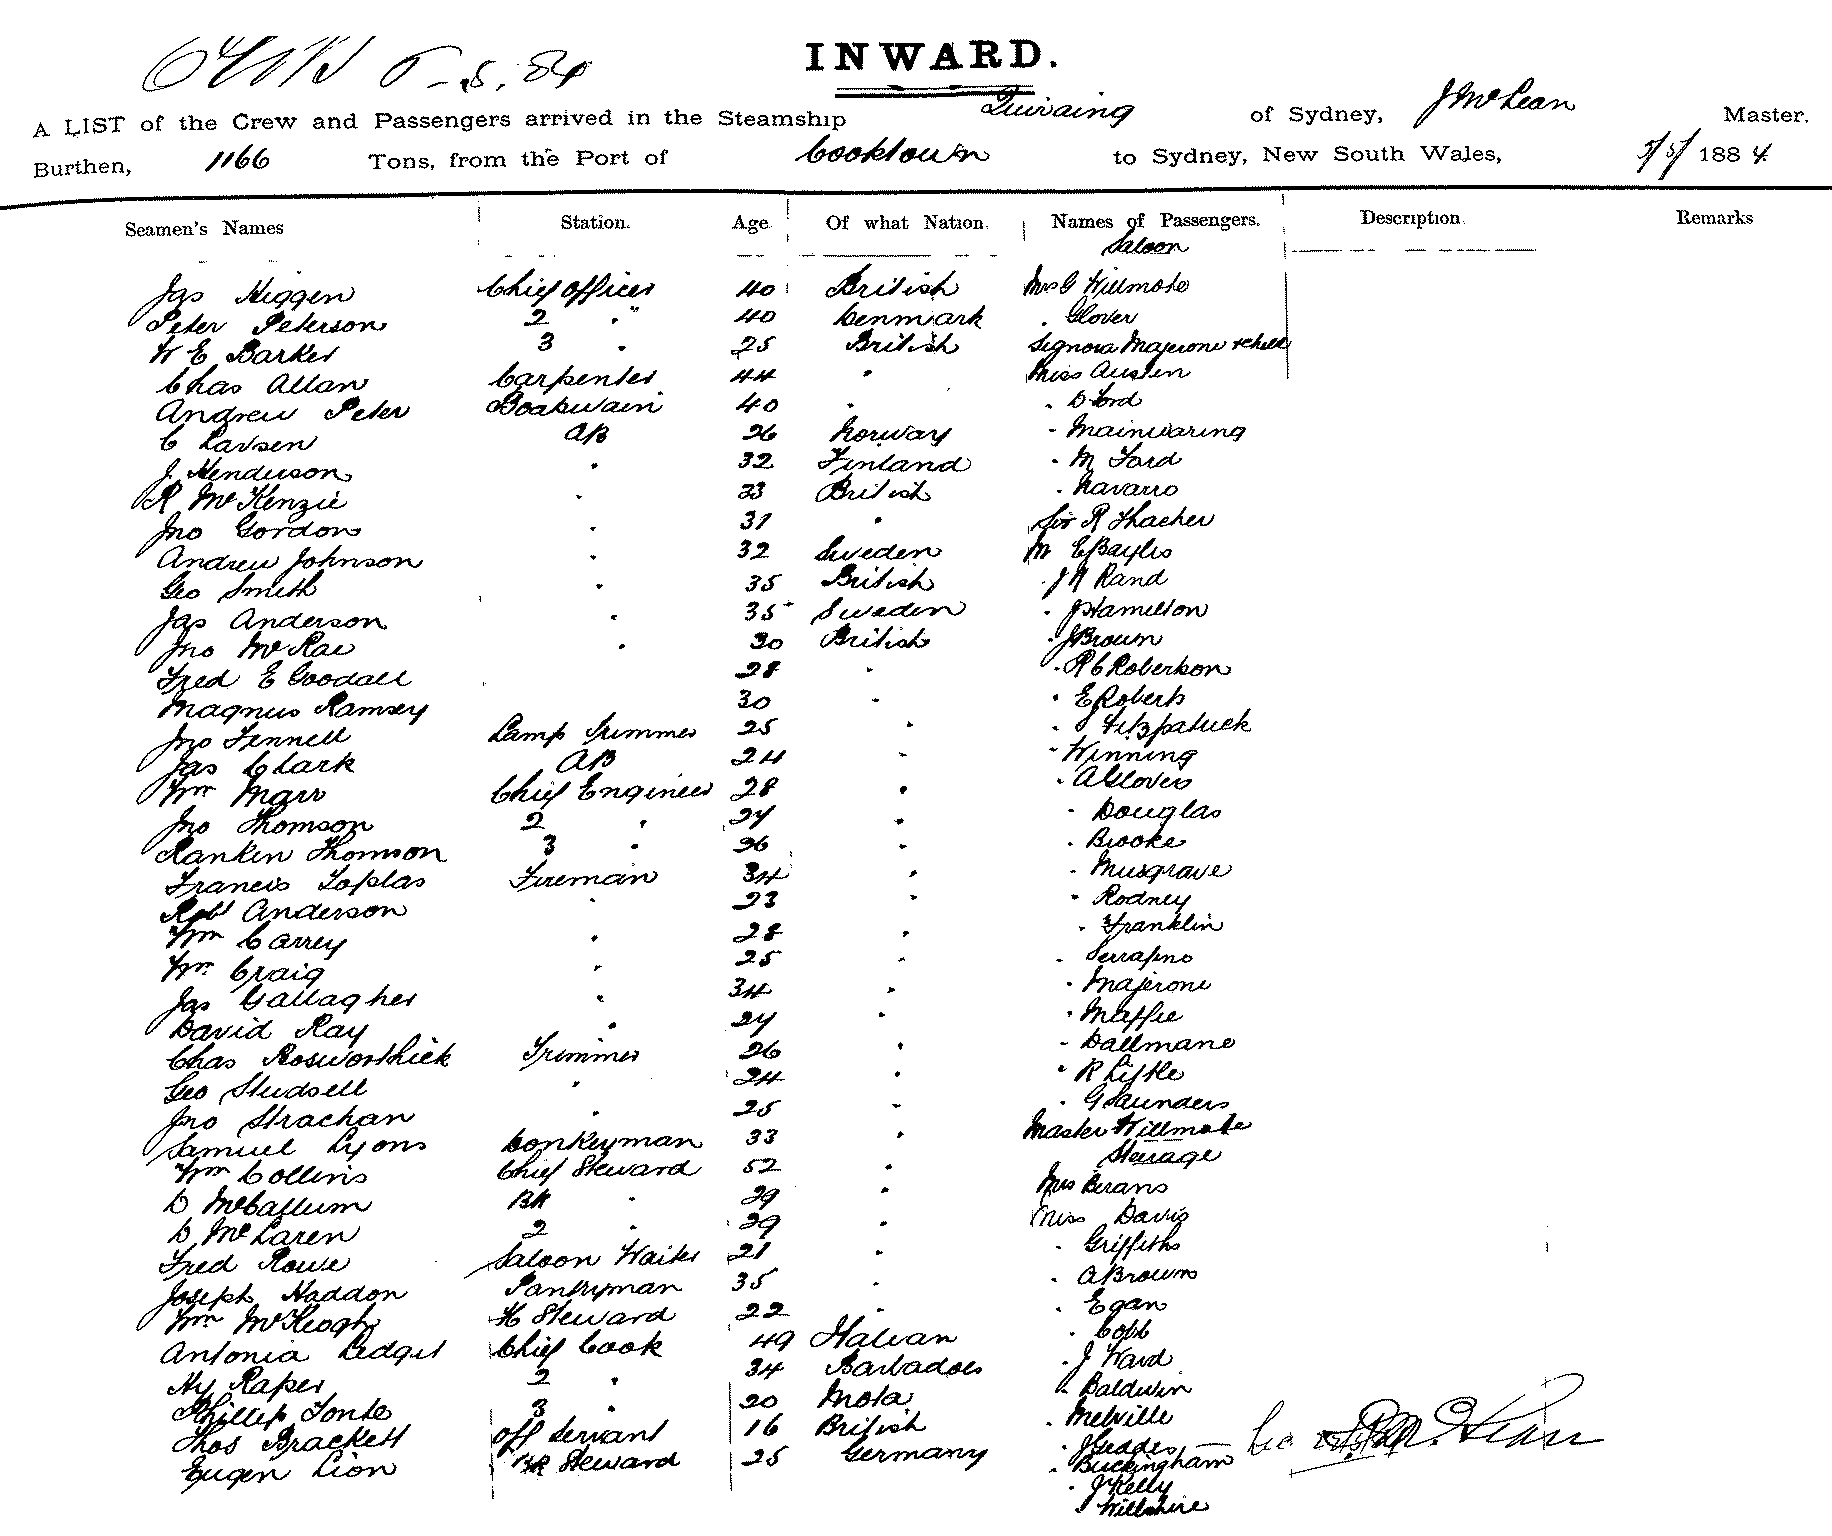 INWARD.
5.5.84
A LIST of the Crew and Passengers arrived in the Steamship Quiraing of Sydney, J McLean Master.
Burthen, 1166 Tons, from the Port of Cooktown to Sydney, New South Wales, 5/5/ 1884.
Seamen's Names Station. Age Of what Nation. Names of Passengers. Description Remarks
Saloon
Jas Higgen Chief Officer 40 British Mrs G Willmote
Peter Peterson 2 " 40 Denmark " Glover
W E Barker 3 " 25 British Signora Majeroni & child
Chas Allan Carpenter 44 " Miss Austen
Andrew Peter Boatswain 40 " " D Ford
C Larsen AB 26 Norway " Mainwaring
J Henderson " 32 Finland " M Ford
R McKenzie " 33 British " Navarro
Jno Gordon " 31 " Sir R Thacher
Andrew Johnson " 32 Sweden M E Baylis
Geo Smith " 35 British " J N Rand
Jas Anderson " 35 Sweden " J Hamilton
Jno McRae " 30 British " J Brown
Fred E Goodall 28 " " R C Robertson
Magnus Ramsey 30 " " E Roberts
Jno Fennell Lamp Trimmer 25 " " J Fitzpatrick
Jas Clark AB 24 " " Winning
Wm Marr Chief Engineer 28 " " A Glover
Jno Thomson 2 " 27 " " Douglas
Rankin Thomson 3 " 26 " " Brooke
Francis Toplas Fireman 34 " " Musgrave
Robt Anderson " 23 " " Rodney
Wm Carrey " 28 " " Franklin
Wm Craig " 25 " " Serrafino
Jas Gallagher " 34 " " Majeroni
David Ray " 27 " " Maffie
Chas Rosworthick Trimmer 26 " " Dallmane
Geo Studsell " 24 " " R Liftke
Jno Strachan " 25 " " G Saunders
Samuel Lyons Donkeyman 33 " Master Willmote
Steerage
Wm Collins Chief Steward 52 "
D McCallum BK " 29 " Mrs Berans
D McLaren 2 " 29 " Miss Davis
Fred Rowe Saloon Waiter 21 " " Griffiths
Joseph Haddon Pantryman 35 " " A Brown
Wm McKeogh H Steward 22 " " Egan
Antonia Ledget Chief Cook 49 Italian " Cobb
Hy Raper 2 " 34 Barbadoes " J Ward
Phillip Tonte 3 " 20 Mota " Baldwin
Thos Brackett Off Servant 16 British " Melville
Eugen Lion BK Steward 25 Germany " J Geddes
" Buckingham
" J Kelly
" Willshire